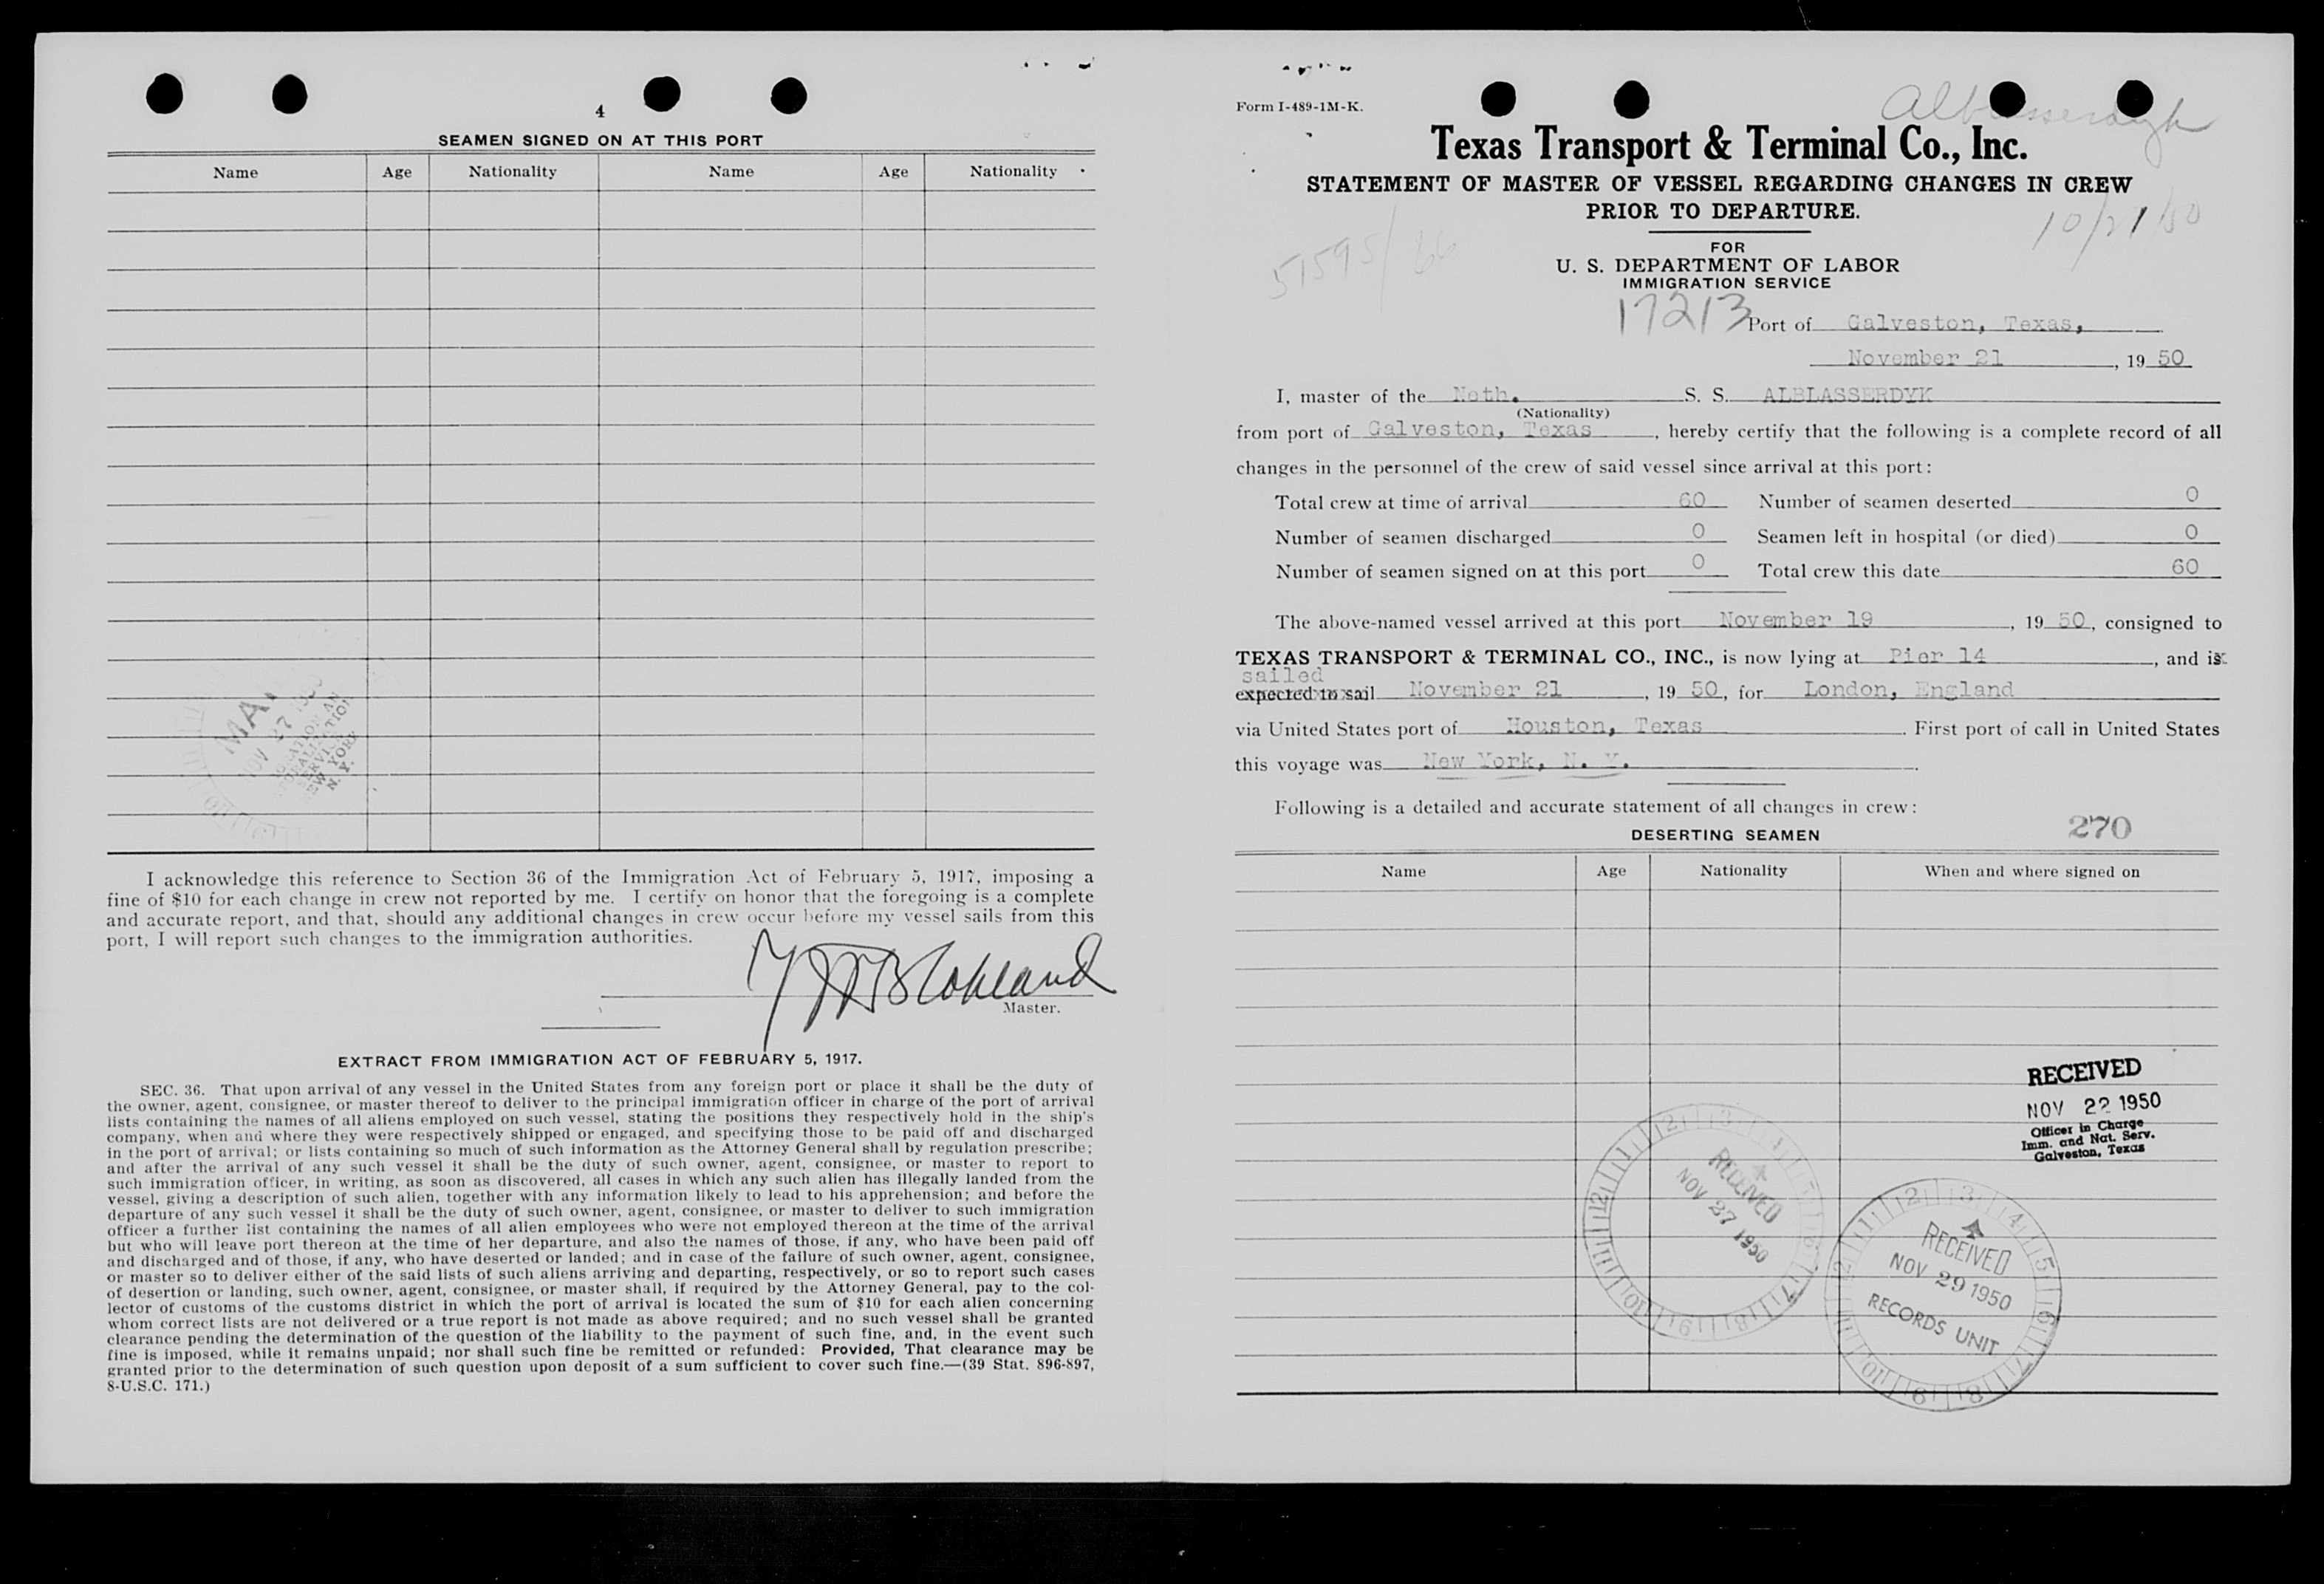 4
SEAMEN SIGNED ON AT THIS PORT
Name Age Nationality Name Age Nationality
NOV 27
NEW YORK
N. Y.
I acknowledge this reference to Section 36 of the Immigration Act of February 5, 1917, imposing a
fine of $10 for each change in crew not reported by me. I certify on honor that the foregoing is a complete
and accurate report, and that, should any additional changes in crew occur before my vessel sails from this
port, I will report such changes to the immigration authorities.
Master.
EXTRACT FROM IMMIGRATION ACT OF FEBRUARY 5, 1917.
SEC. 36. That upon arrival of any vessel in the United States from any foreign port or place it shall be the duty of
the owner, agent, consignee, or master thereof to deliver to the principal immigration officer in charge of the port of arrival
lists containing the names of all aliens employed on such vessel, stating the positions they respectively hold in the ship's
company, when and where they were respectively shipped or engaged, and specifying those to be paid off and discharged
in the port of arrival; or lists containing so much of such information as the Attorney General shall by regulation prescribe;
and after the arrival of any such vessel it shall be the duty of such owner, agent, consignee, or master to report to
such immigration officer, in writing, as soon as discovered, all cases in which any such alien has illegally landed from the
vessel, giving a description of such alien, together with any information likely to lead to his apprehension; and before the
departure of any such vessel it shall be the duty of such owner, agent, consignee, or master to deliver to such immigration
officer a further list containing the names of all alien employees who were not employed thereon at the time of the arrival
but who will leave port thereon at the time of her departure, and also the names of those, if any, who have been paid off
and discharged and of those, if any, who have deserted or landed; and in case of the failure of such owner, agent, consignee,
or master so to deliver either of the said lists of such aliens arriving and departing, respectively, or so to report such cases
of desertion or landing, such owner, agent, consignee, or master shall, if required by the Attorney General, pay to the col-
lector of customs of the customs district in which the port of arrival is located the sum of $10 for each alien concerning
whom correct lists are not delivered or a true report is not made as above required; and no such vessel shall be granted
clearance pending the determination of the question of the liability to the payment of such fine, and, in the event such
fine is imposed, while it remains unpaid; nor shall such fine be remitted or refunded: Provided, That clearance may be
granted prior to the determination of such question upon deposit of a sum sufficient to cover such fine.—(39 Stat. 896-897,
8-U.S.C. 171.)
Form I-489-1M-K.
Texas Transport & Terminal Co., Inc.
STATEMENT OF MASTER OF VESSEL REGARDING CHANGES IN CREW
PRIOR TO DEPARTURE.
10/21/50
51595/66
FOR
U. S. DEPARTMENT OF LABOR
IMMIGRATION SERVICE
17213
Port of Galveston, Texas,
November 21, 19 50
I, master of the Neth. S. S. ALBLASSERDYK
(Nationality)
from port of Galveston, Texas, hereby certify that the following is a complete record of all
changes in the personnel of the crew of said vessel since arrival at this port:
Total crew at time of arrival 60 Number of seamen deserted 0
Number of seamen discharged 0 Seamen left in hospital (or died) 0
Number of seamen signed on at this port 0 Total crew this date 60
The above-named vessel arrived at this port November 19, 19 50, consigned to
TEXAS TRANSPORT & TERMINAL CO., INC., is now lying at Pier 14, and is
sailed
expected to sail November 21, 19 50, for London, England
via United States port of Houston, Texas. First port of call in United States
this voyage was New York, N. Y.
Following is a detailed and accurate statement of all changes in crew:
270
DESERTING SEAMEN
Name Age Nationality When and where signed on
RECEIVED
NOV 22 1950
Officer in Charge
Imm. and Nat. Serv.
Galveston, Texas
RECEIVED
NOV 27 1950
RECEIVED
NOV 29 1950
RECORDS UNIT